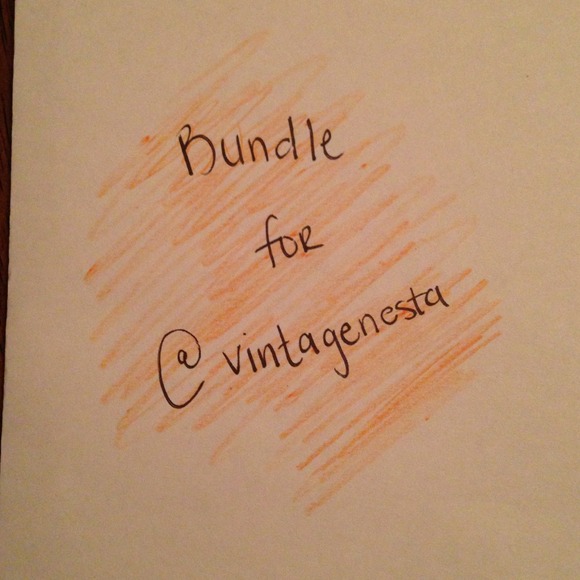 Bundle
for
@vintagenesta